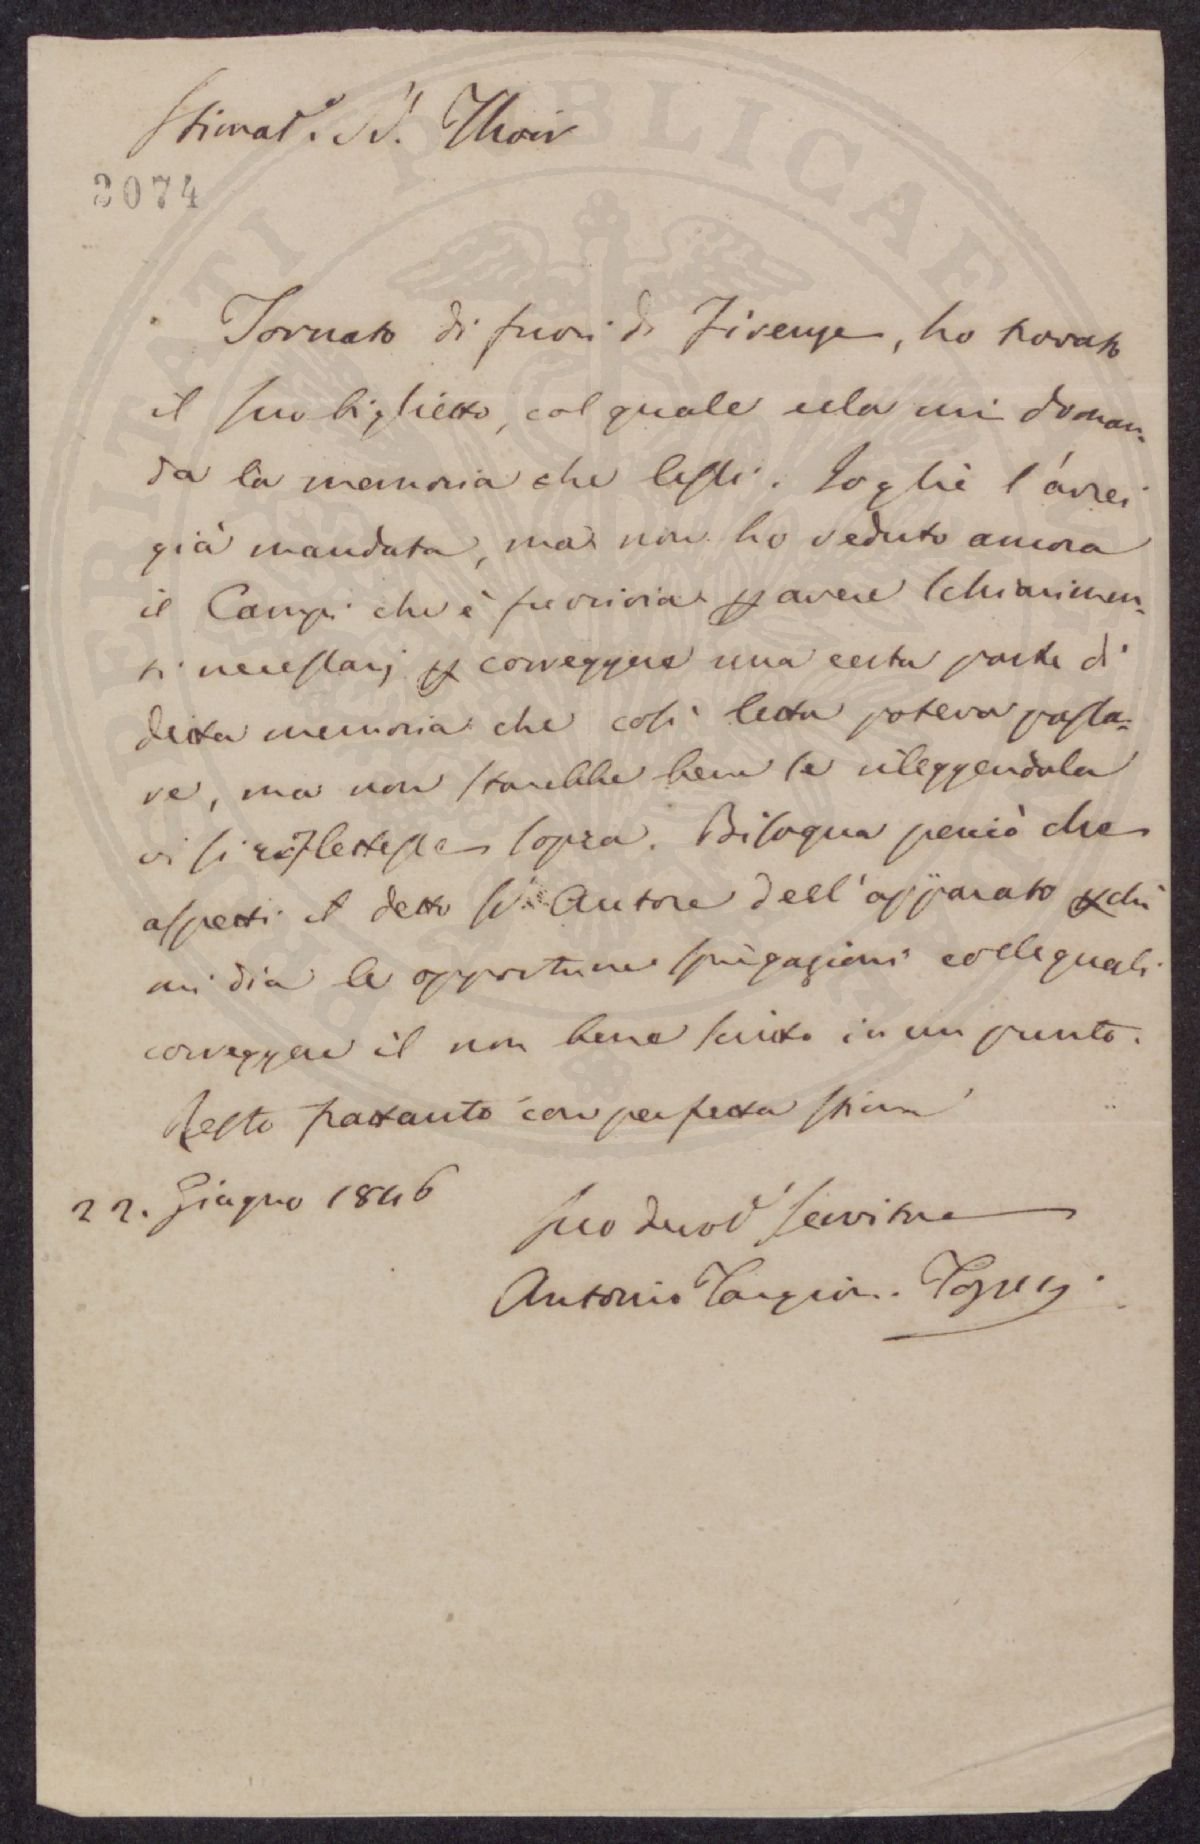 Stimat.e Sr. Thoin
2074
Tornato di fuori di Firenze, ho trovato
il suo biglietto, col quale ella mi doman-
da la memoria che lessi. Io gliè l'avrei
già mandata, ma non ho veduto ancora
il Campi che è fuorivia p avere schiarimen-
ti necessarj p correggere una certa parte di
detta memoria che così letta poteva passa-
re, ma non starebbe bene se rileggendola
vi si riflettesse sopra. Bisogna perciò che
aspetti il detto Sr. Autore dell'apparato pchè
mi dia le opportune spiegazioni colle quali
correggere il non bene scritto in un punto.
Resto frattanto con perfetta stima
22. Giugno 1846
suo devot servitore
Antonio Targioni. Tozzetti
PUBLICAE